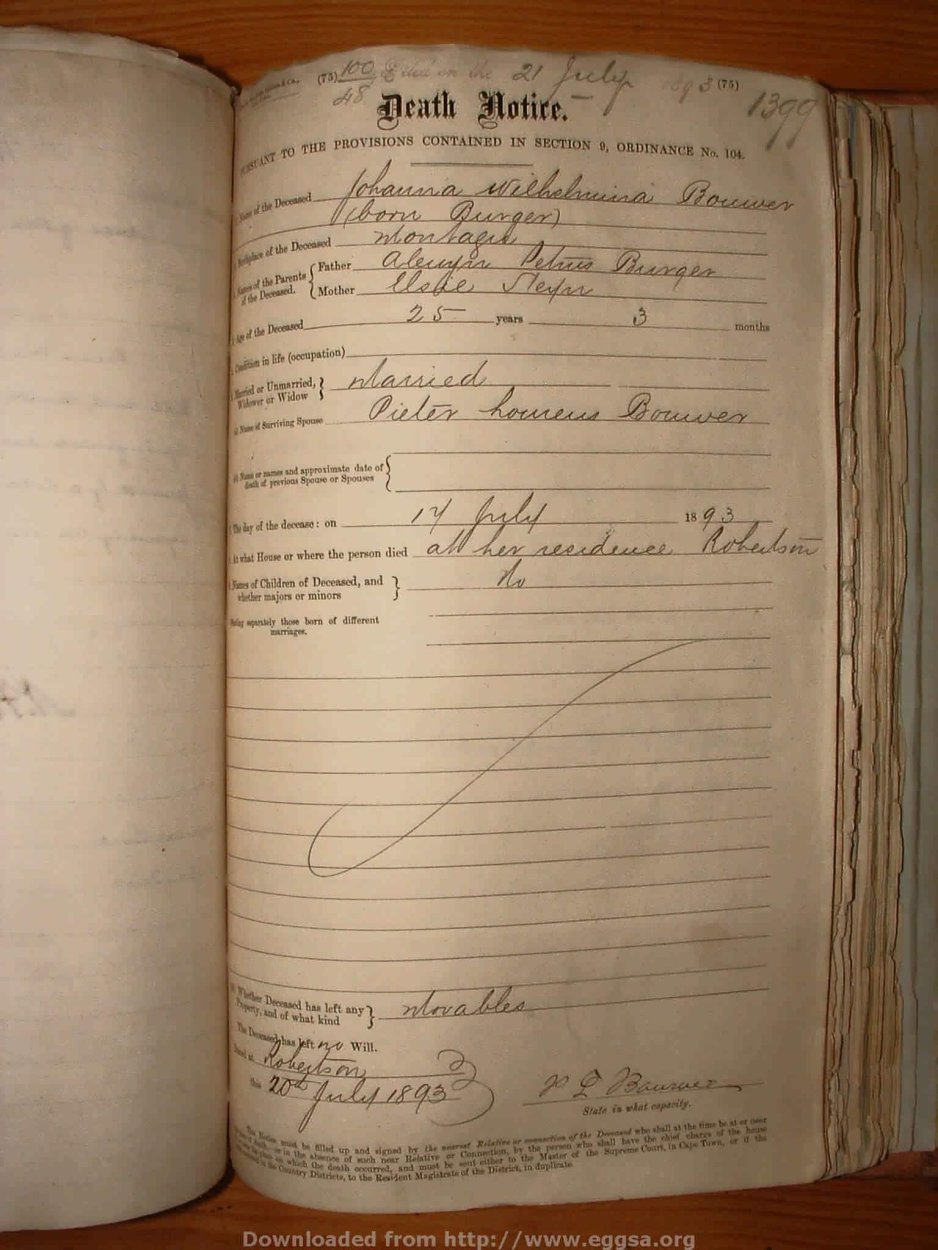 (75) 100 Filed on the 21 July 1893 (75)
48
1399
Death Notice.
PURSUANT TO THE PROVISIONS CONTAINED IN SECTION 9, ORDINANCE No. 104.
Name of the Deceased Johanna Wilhelmina Bouwer
(born Burger)
Birthplace of the Deceased Montagu
Names of the Parents of the Deceased. Father Alewyn Petrus Burger
Mother Elsie Steyn
Age of the Deceased 25 years 3 months
Condition in life (occupation)
Married or Unmarried, Widower or Widow Married
Name of Surviving Spouse Pieter Lourens Bouwer
Name or names and approximate date of
death of previous Spouse or Spouses
The day of the decease: on 14 July 1893
At what House or where the person died at her residence Robertson
Names of Children of Deceased, and No
whether majors or minors
Stating separately those born of different
marriages.
Whether Deceased has left any Movables
Property, and of what kind
The Deceased has left no Will.
Dated at Robertson
this 20th July 1893
P L Bouwer
State in what capacity.
This Notice must be filled up and signed by the nearest Relative or connection of the Deceased who shall at the time be at or near
or in the absence of such near Relative or Connection, by the person who shall have the chief charge of the house
on which the death occurred, and must be sent either to the Master of the Supreme Court, in Cape Town, or if the
Country Districts, to the Resident Magistrate of the District, in duplicate.
Downloaded from http://www.eggsa.org